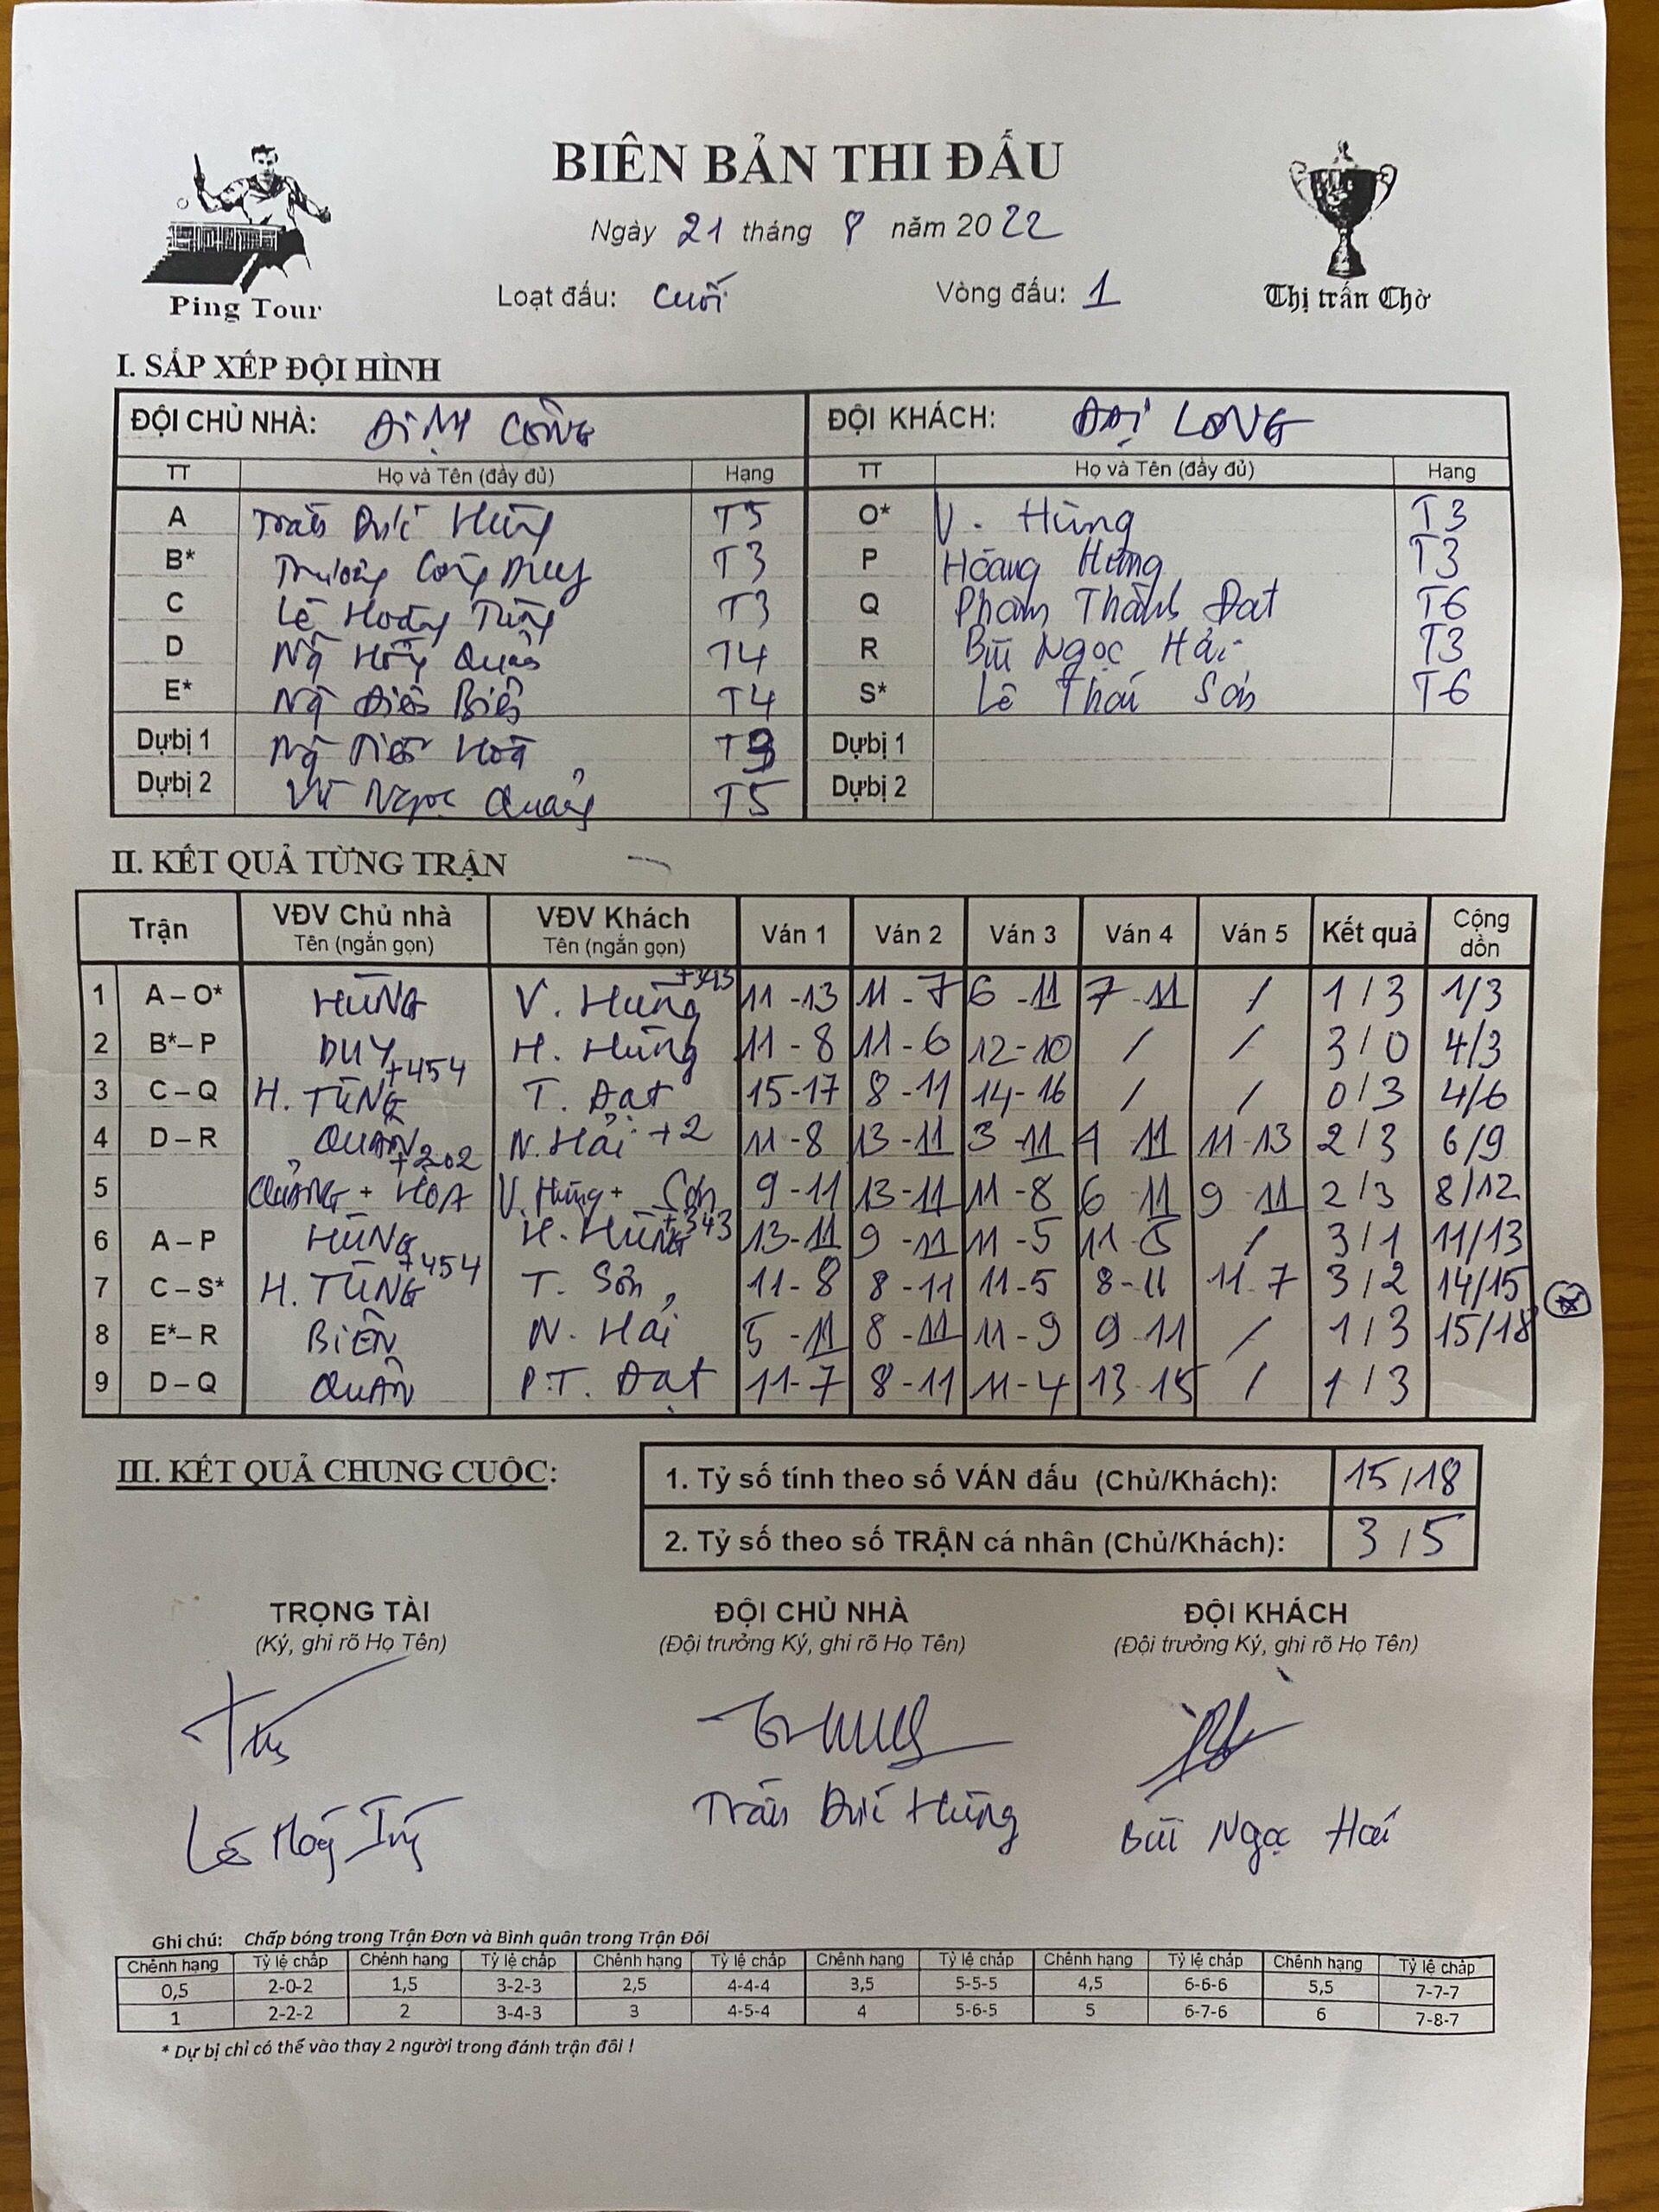 BIÊN BẢN THI ĐẤU
Ngày 21 tháng 8 năm 2022
Loạt đấu: Cuối Vòng đấu: 1
Ping Tour
Thị trấn Chờ
I. SẮP XẾP ĐỘI HÌNH
ĐỘI CHỦ NHÀ: ĐỊNH CÔNG ĐỘI KHÁCH: ĐẠI LONG
TT Họ và Tên (đầy đủ) Hạng TT Họ và Tên (đầy đủ) Hạng
A Trần Đức Hùng T5 O* V. Hùng T3
B* Trương Công Duy T3 P Hoàng Hưng T3
C Lê Hoàng Tùng T3 Q Phạm Thành Đạt T6
D Ng Hồng Quân T4 R Bùi Ngọc Hải T3
E* Ng Điên Biên T4 S* Lê Thái Sơn T6
Dự bị 1 Ng Tiến Hoà Dự bị 1
Dự bị 2 Vũ Ngọc Quảng T5 Dự bị 2
II. KẾT QUẢ TỪNG TRẬN
Trận VĐV Chủ nhà Tên (ngắn gọn) VĐV Khách Tên (ngắn gọn) Ván 1 Ván 2 Ván 3 Ván 4 Ván 5 Kết quả Cộng dồn
1 A – O* HÙNG V. Hùng +343 11-13 11-7 6-11 7-11 / 1/3 1/3
2 B* – P DUY H. Hưng 11-8 11-6 12-10 / / 3/0 4/3
3 C – Q H. TÙNG +454 T. Đạt 15-17 8-11 14-16 / / 0/3 4/6
4 D – R QUÂN N. Hải +2 11-8 13-11 3-11 4-11 11-13 2/3 6/9
5 QUẢNG + HÒA +202 V. Hùng + Sơn 9-11 13-11 11-8 6-11 9-11 2/3 8/12
6 A – P HÙNG H. HƯNG +343 13-11 9-11 11-5 11-5 / 3/1 11/13
7 C – S* H. TÙNG +454 T. Sơn 11-8 8-11 11-5 8-11 11-7 3/2 14/15
8 E* – R BIÊN N. Hải 5-11 8-11 11-9 9-11 / 1/3 15/18
9 D – Q QUÂN P.T. Đạt 11-7 8-11 11-4 13-15 / 1/3
III. KẾT QUẢ CHUNG CUỘC:
1. Tỷ số tính theo số VÁN đấu (Chủ/Khách): 15/18
2. Tỷ số theo số TRẬN cá nhân (Chủ/Khách): 3/5
TRỌNG TÀI ĐỘI CHỦ NHÀ ĐỘI KHÁCH
(Ký, ghi rõ Họ Tên) (Đội trưởng Ký, ghi rõ Họ Tên) (Đội trưởng Ký, ghi rõ Họ Tên)
Trần Đức Hùng Bùi Ngọc Hải
Ghi chú: Chấp bóng trong Trận Đơn và Bình quân trong Trận Đôi
Chênh hạng Tỷ lệ chấp Chênh hạng Tỷ lệ chấp Chênh hạng Tỷ lệ chấp Chênh hạng Tỷ lệ chấp Chênh hạng Tỷ lệ chấp Chênh hạng Tỷ lệ chấp
0,5 2-0-2 1,5 3-2-3 2,5 4-4-4 3,5 5-5-5 4,5 6-6-6 5,5 7-7-7
1 2-2-2 2 3-4-3 3 4-5-4 4 5-6-5 5 6-7-6 6 7-8-7
* Dự bị chỉ có thể vào thay 2 người trong đánh trận đôi !